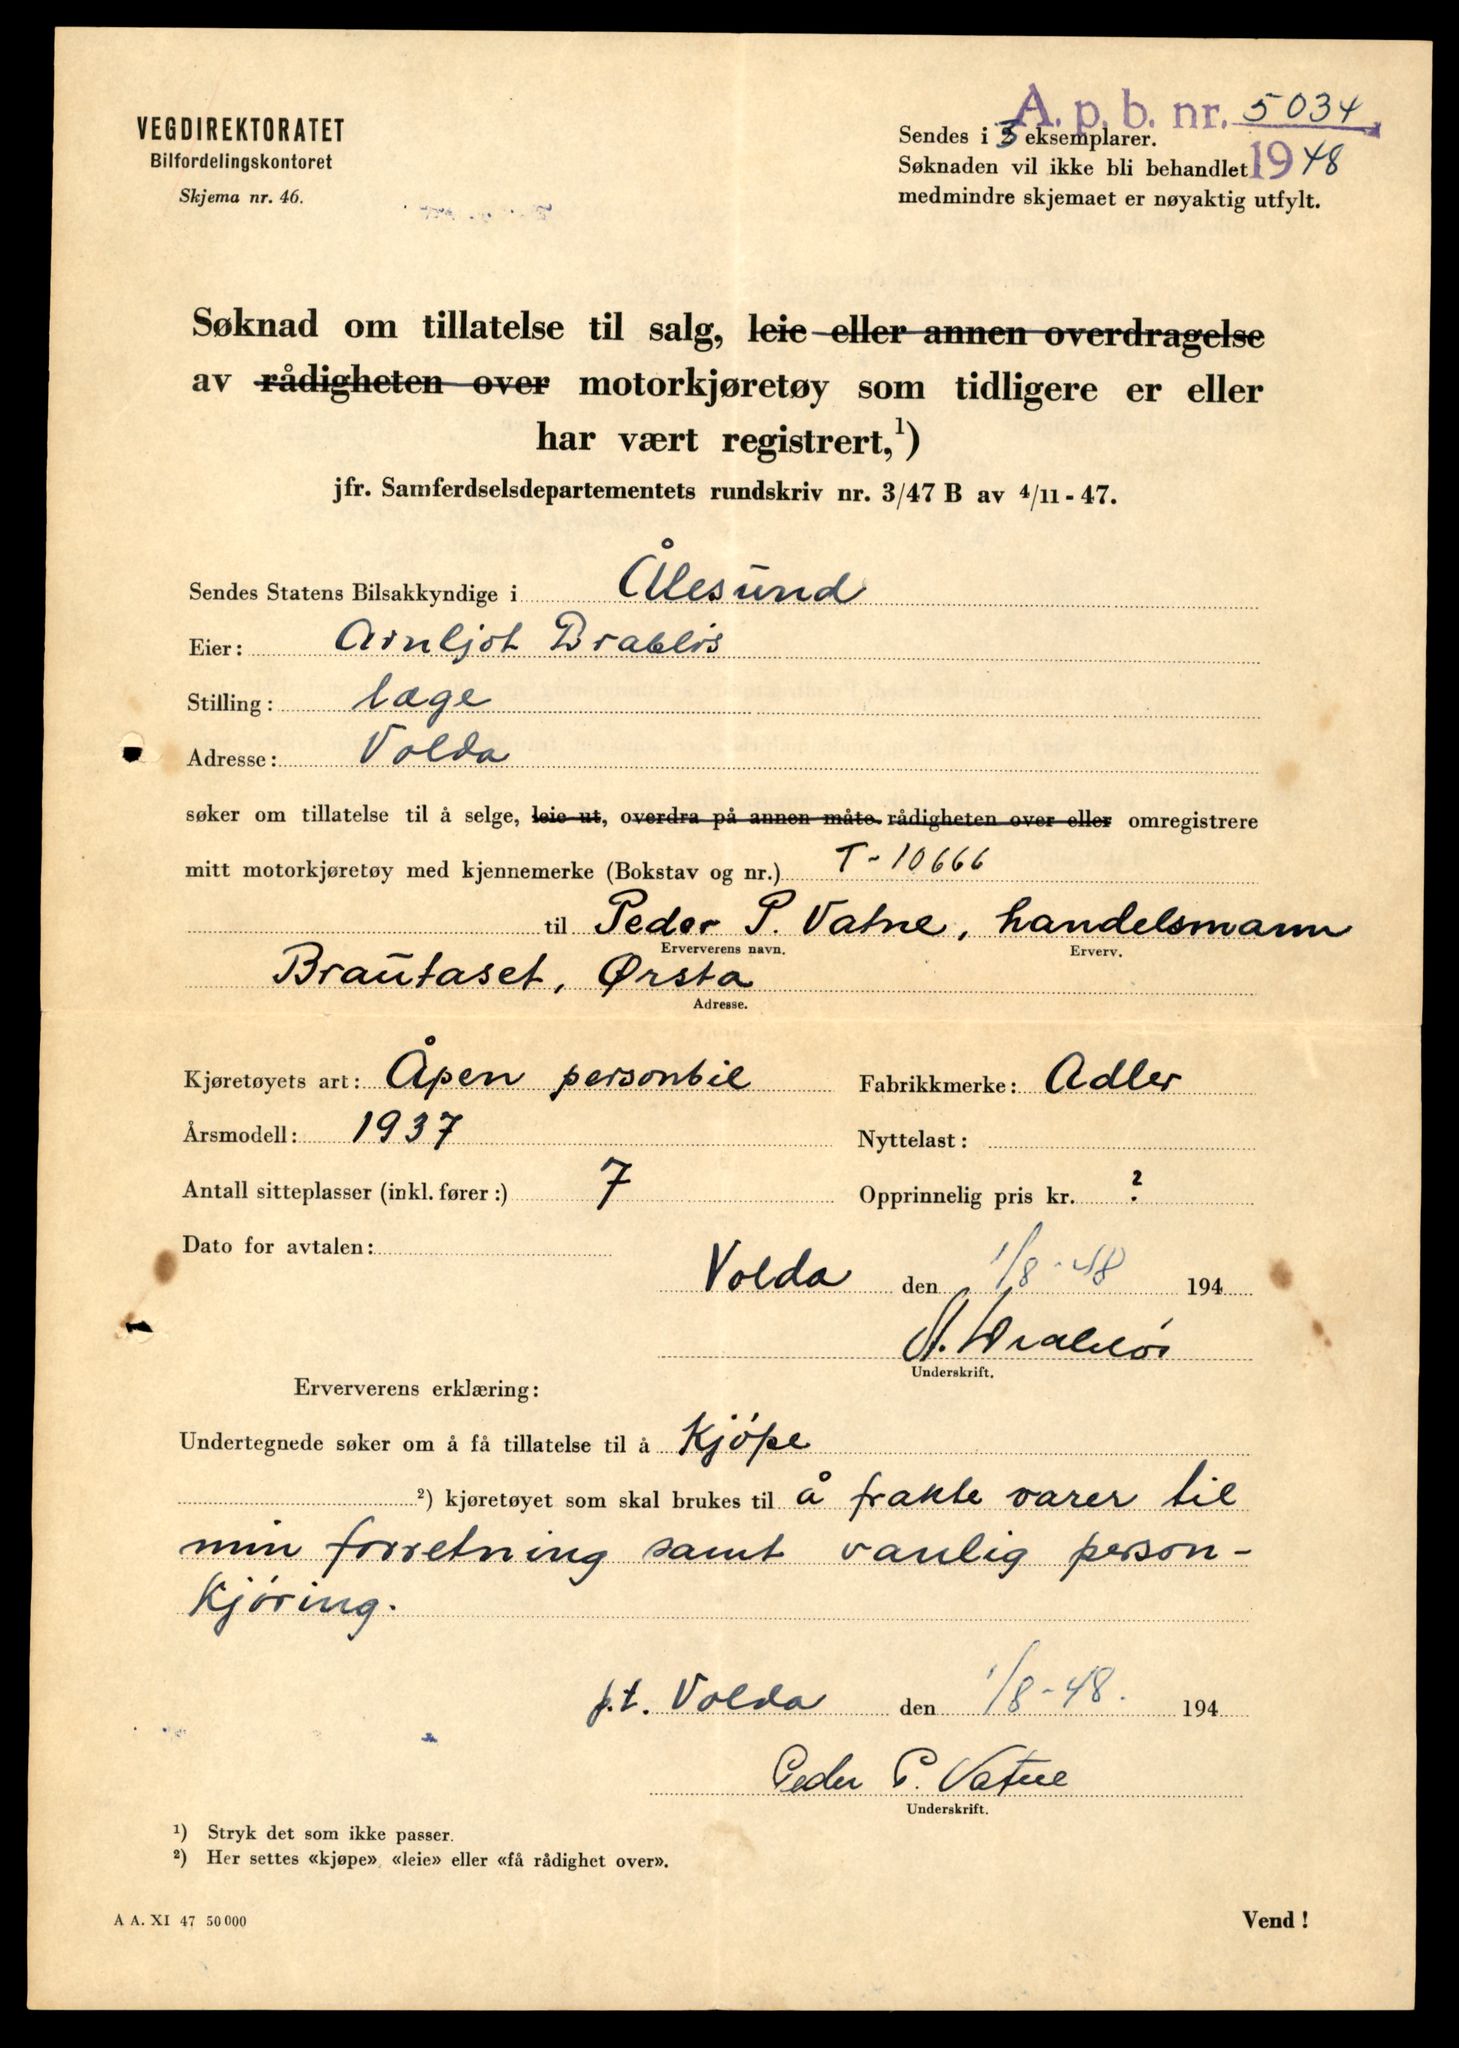 VEGDIREKTORATET
Bilfordelingskontoret
Skjema nr. 46.
A. p. b. nr. 5034
Sendes i 3 eksemplarer.
1948
Søknaden vil ikke bli behandlet
medmindre skjemaet er nøyaktig utfylt.
Søknad om tillatelse til salg, leie eller annen overdragelse
av rådigheten over motorkjøretøy som tidligere er eller
har vært registrert,¹)
jfr. Samferdselsdepartementets rundskriv nr. 3/47 B av 4/11 - 47.
Sendes Statens Bilsakkyndige i Ålesund
Eier: Arnljot
Stilling: læge
Adresse: Volda
søker om tillatelse til å selge, leie ut, overdra på annen måte rådigheten over eller omregistrere
mitt motorkjøretøy med kjennemerke (Bokstav og nr.) T-10666
til Peder P. Vatne, handelsmann
Erververens navn. Erverv.
Brautaset, Ørsta
Adresse.
Kjøretøyets art: Åpen personbil Fabrikkmerke: Adler
Årsmodell: 1937 Nyttelast:
Antall sitteplasser (inkl. fører:) 7 Opprinnelig pris kr. ?
Dato for avtalen:
Volda den 1/8-48 194
Underskrift.
Erververens erklæring:
Undertegnede søker om å få tillatelse til å Kjöpe
²) kjøretøyet som skal brukes til å frakte varer til
min forretning samt vanlig person-
Kjöring.
p.t. Volda den 1/8-48. 194
Peder P. Vatne
Underskrift.
¹) Stryk det som ikke passer.
²) Her settes «kjøpe», «leie» eller «få rådighet over».
A A. XI 47 50 000
Vend !